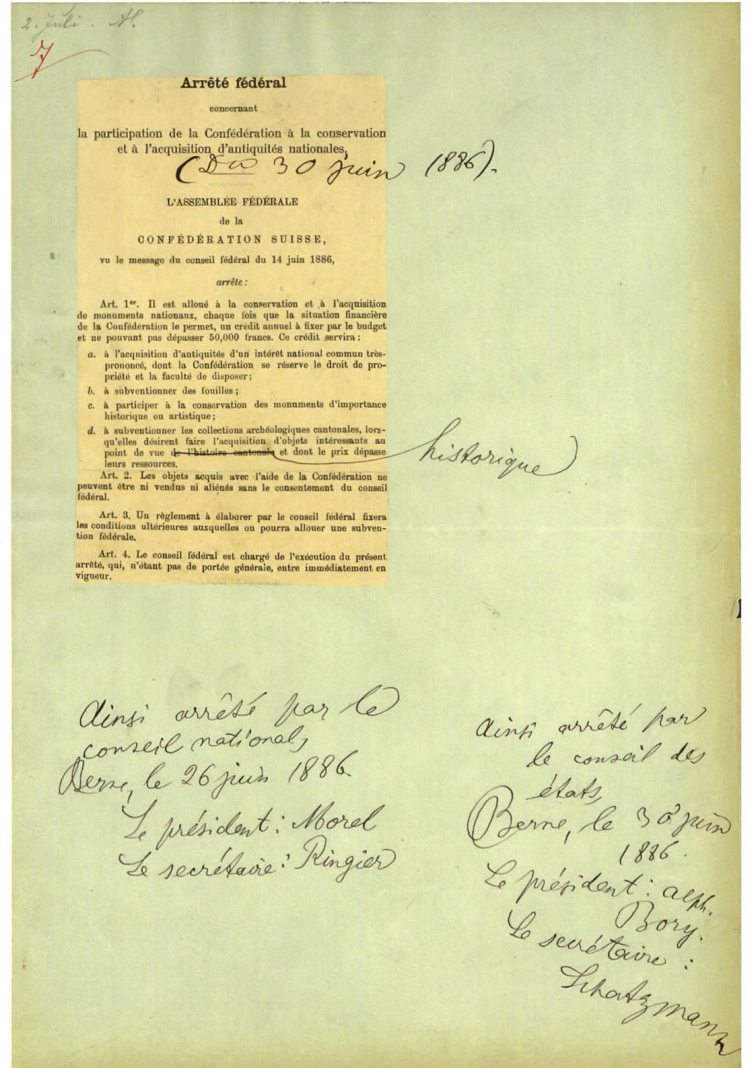 2. Juli. Al.
7
Arrêté fédéral
concernant
la participation de la Confédération à la conservation
et à l'acquisition d'antiquités nationales,
(Du 30 juin 1886).
L'ASSEMBLÉE FÉDÉRALE
de la
CONFÉDÉRATION SUISSE,
vu le message du conseil fédéral du 14 juin 1886,
arrête:
Art. 1er. Il est alloué à la conservation et à l'acquisition
de monuments nationaux, chaque fois que la situation financière
de la Confédération le permet, un crédit annuel à fixer par le budget
et ne pouvant pas dépasser 50,000 francs. Ce crédit servira :
a. à l'acquisition d'antiquités d'un intérêt national commun très-
prononcé, dont la Confédération se réserve le droit de pro-
priété et la faculté de disposer;
b. à subventionner des fouilles;
c. à participer à la conservation des monuments d'importance
historique ou artistique;
d. à subventionner les collections archéologiques cantonales, lors-
qu'elles désirent faire l'acquisition d'objets intéressants au
point de vue de l'histoire cantonale et dont le prix dépasse
historique
leurs ressources.
Art. 2. Les objets acquis avec l'aide de la Confédération ne
peuvent être ni vendus ni aliénés sans le consentement du conseil
fédéral.
Art. 3. Un règlement à élaborer par le conseil fédéral fixera
les conditions ultérieures auxquelles on pourra allouer une subven-
tion fédérale.
Art. 4. Le conseil fédéral est chargé de l'exécution du présent
arrêté, qui, n'étant pas de portée générale, entre immédiatement en
vigueur.
Ainsi arrêté par le
conseil national,
Berne, le 26 juin 1886.
Le président: Morel
Le secrétaire: Ringier
Ainsi arrêté par
le conseil des
états,
Berne, le 30 juin
1886.
Le président: Alph.
Bory.
Le secrétaire:
Schatzmann